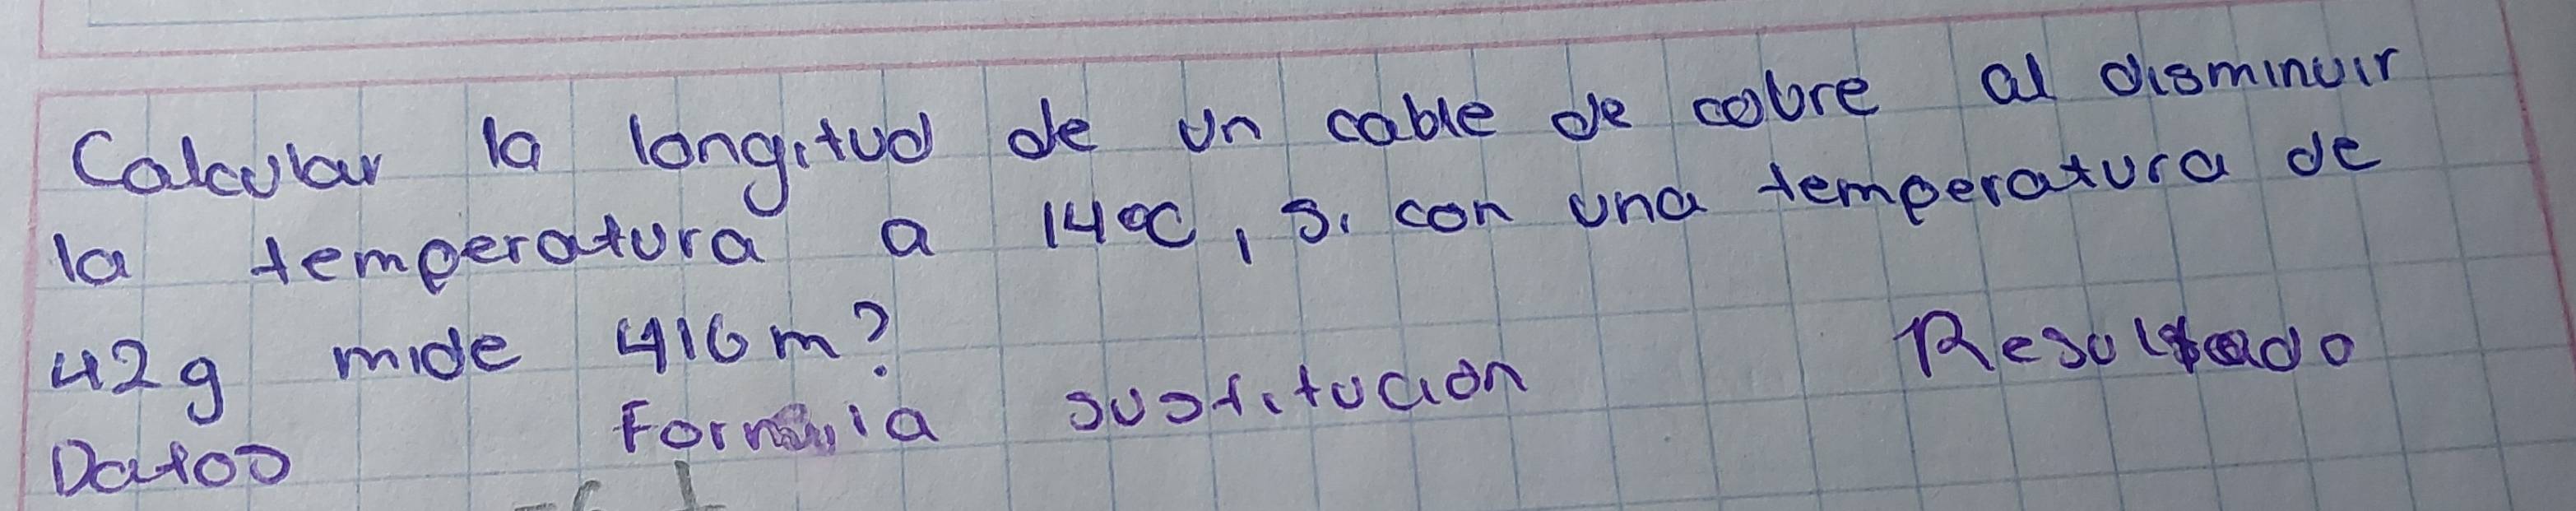 Calcular la longitud de un cable de cobre al disminuir
la temperatura a 14°C, si con una temperatura de
42g mide 416m?
Datos Formula sustitución Resultado